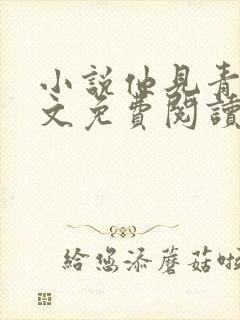 小説仙見青
文免費閱讀
給您添蘑菇啦